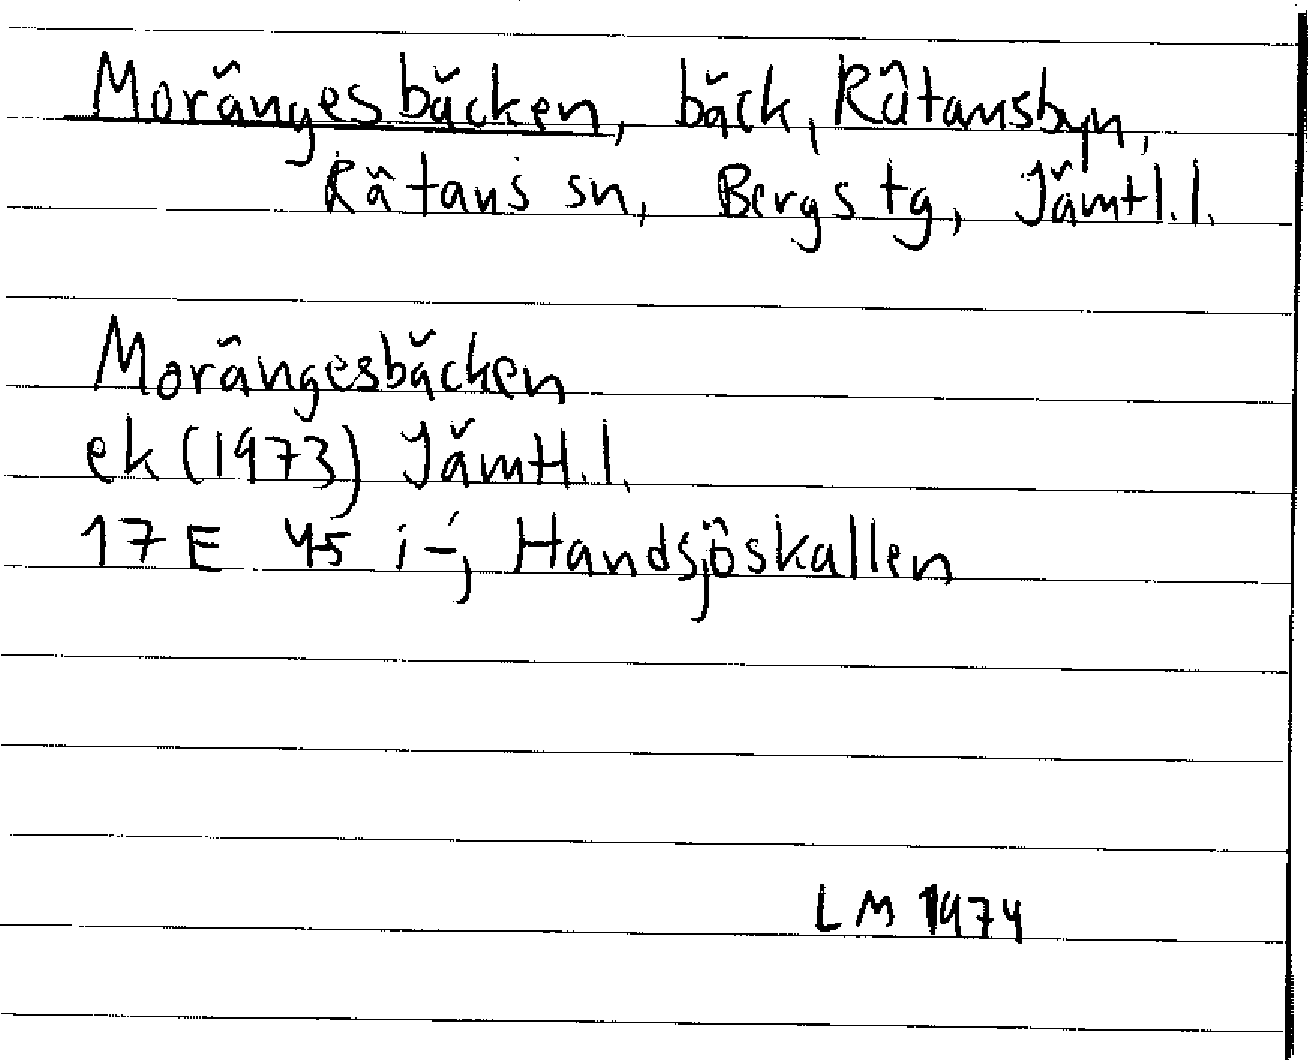 Morängesbäcken, bäck, Rätansbyn,
Rätans sn, Bergs tg, Jämtl.l.
Morängesbäcken
ek (1973) Jämtl.l.
17 E 45 i-j, Handsjöskallen
LM 1974